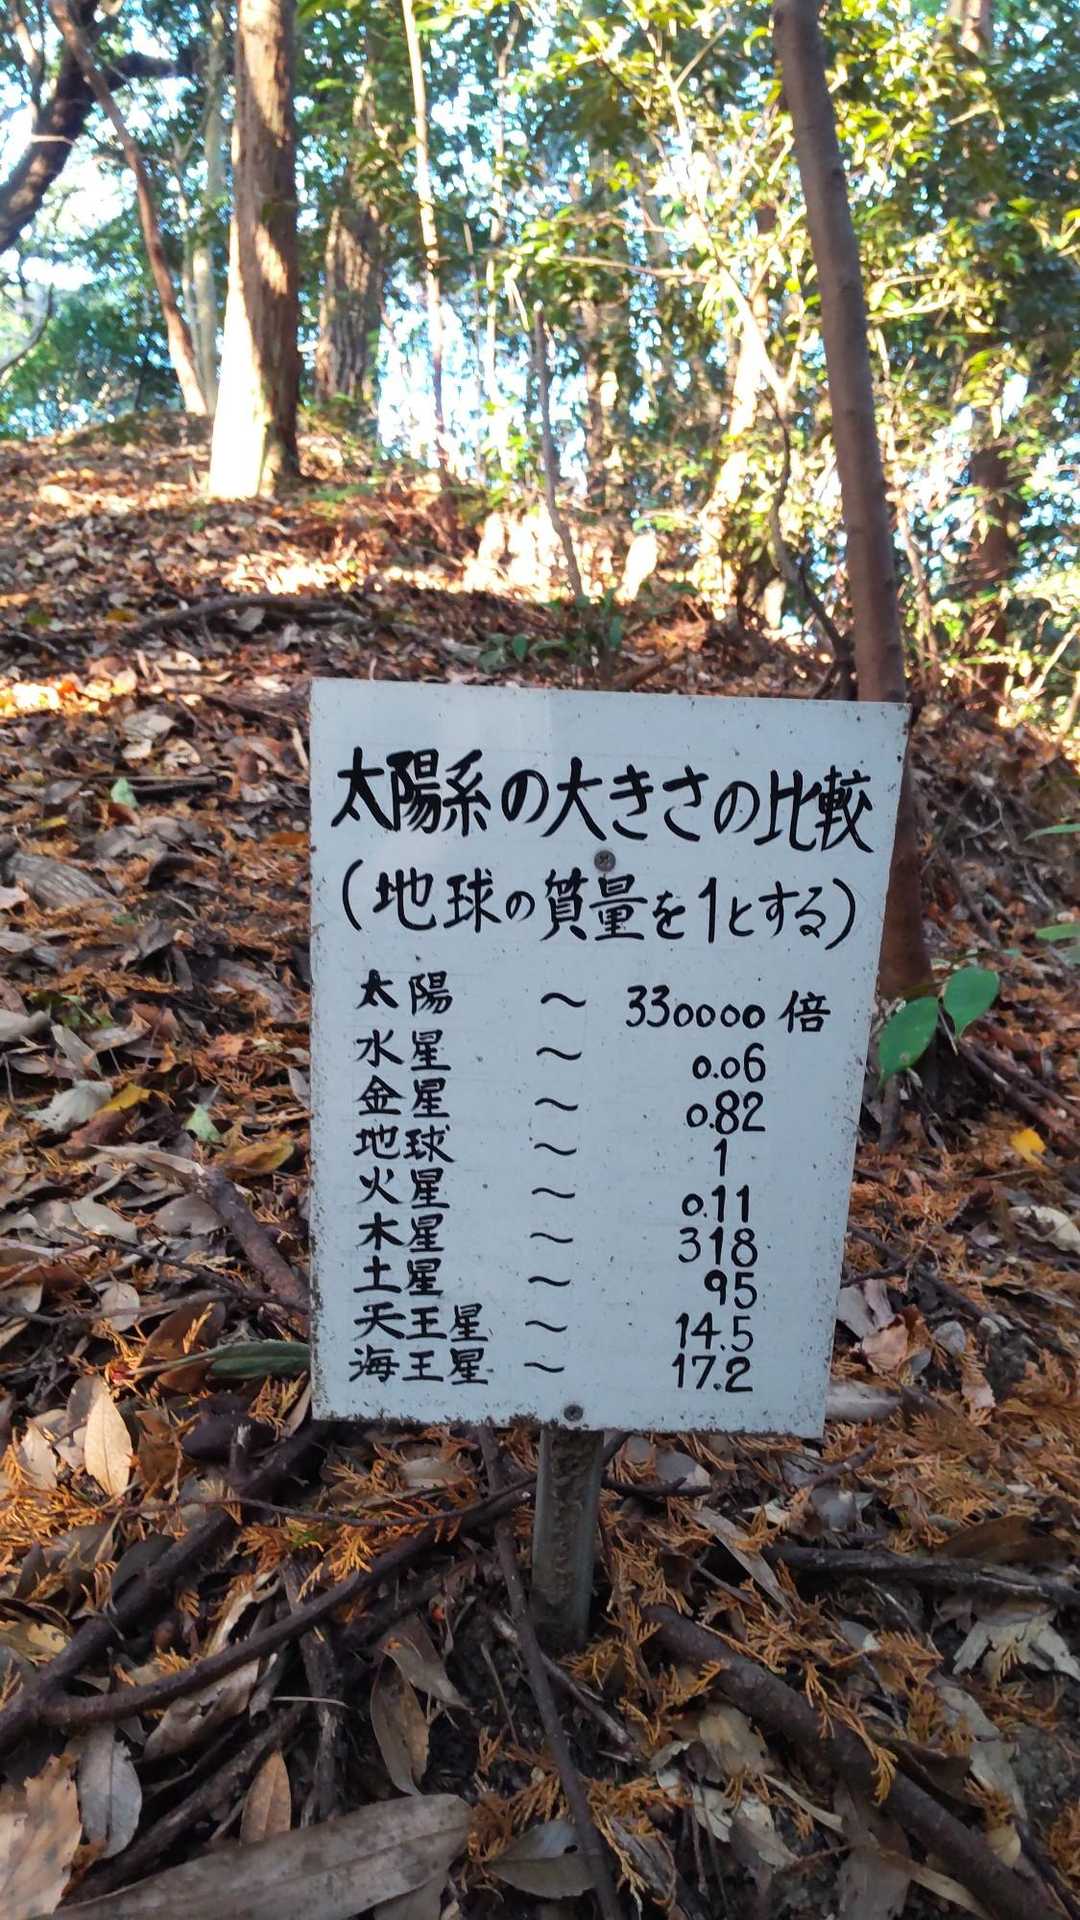 太陽系の大きさの比較
(地球の質量を1とする)
太陽 〜 330000倍
水星 〜 0.06
金星 〜 0.82
地球 〜 1
火星 〜 0.11
木星 〜 318
土星 〜 95
天王星 〜 14.5
海王星 〜 17.2